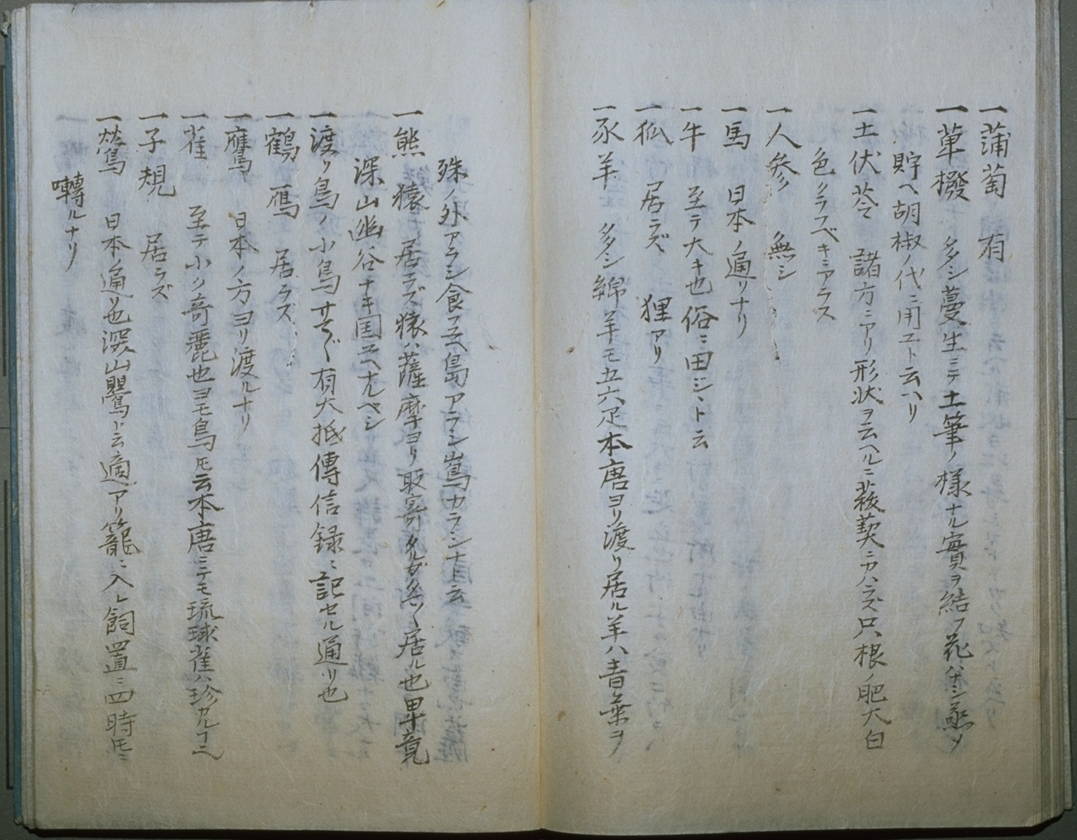 一蒲萄 有
一蓽撥 多シ蔓生ニテ土筆ノ様ナル實ヲ結フ花ハナシ蒸メ
貯ヘ胡椒ノ代ニ用ユト云ヘリ
一土伏苓 諸方ニアリ形状ヲ云ヘルニ菝葜ニカハラズ只根ノ肥大白
色クラスベキニアラス
一人参ノ 無シ
一馬 日本ノ通リナリ
一牛 至テ大キ也俗ニ田シヽト云
一狐 居ラズ 狸アリ
一豕羊 多シ綿羊モ五六疋本唐ヨリ渡リ居ル羊ハ青葉ヲ
殊ノ外アラシ食フユヘ島アラシ嶌カラシナト云
一熊 猿 居ラズ猿ハ薩摩ヨリ取寄タルガ多ク居ル也畢竟
深山幽谷ナキ国ユヘナルベシ
一渡リ鳥ノ小鳥サマ〴〵有大抵傳信録ニ記セル通リ也
一鶴 雁 居ラズ
一鷹 日本ノ方ヨリ渡ルナリ
一雀 至テ小ク奇麗也ヨモ鳥ト云本唐ニテモ琉球雀ハ珍カルナヘ
一子規 居ラズ
一鶯 日本通リ也深山鶯ト云適アリ籠ニ入レ飼置ニ四時トモニ
囀ルナリ